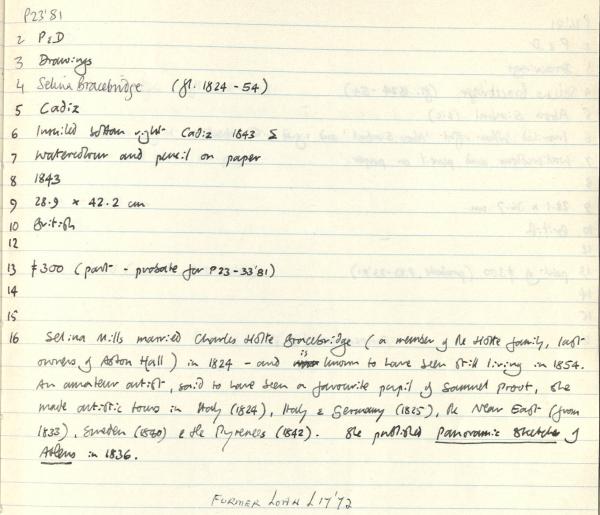 P23'81
2 P&D
3 Drawings
4 Selina Bracebridge (fl. 1824-54)
5 Cadiz
6 Inscribed bottom right - Cadiz 1843 S
7 Watercolour and pencil on paper
8 1843
9 28.9 x 42.2 cm
10 British
12
13 £300 (part - probate for P23-33'81)
14
15
16 Selina Mills married Charles Holte Bracebridge (a member of the Holte family, last
owners of Aston Hall) in 1824 - and is known to have been still living in 1854.
An amateur artist, said to have been a favourite pupil of Samuel Prout, she
made artistic tours in Italy (1824), Italy & Germany (1825), the Near East (from
1833), Sweden (1840) & the Pyrenees (1842). She published Panoramic Sketch of
Athens in 1836.
FORMER LOAN L17'72